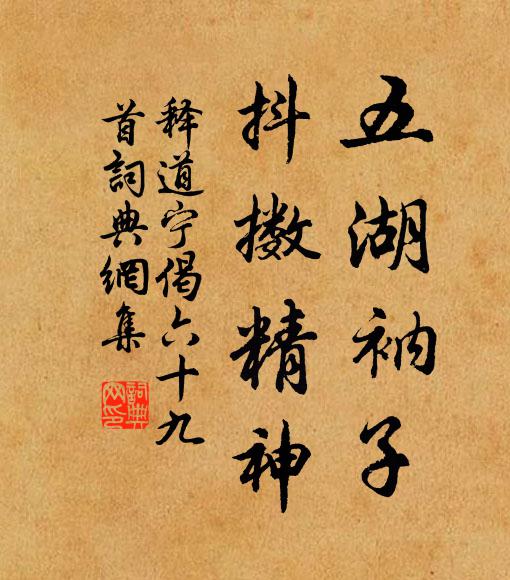 五湖衲子
抖擻精神
释道宁偈六十九
首詞典網集
詞典网印